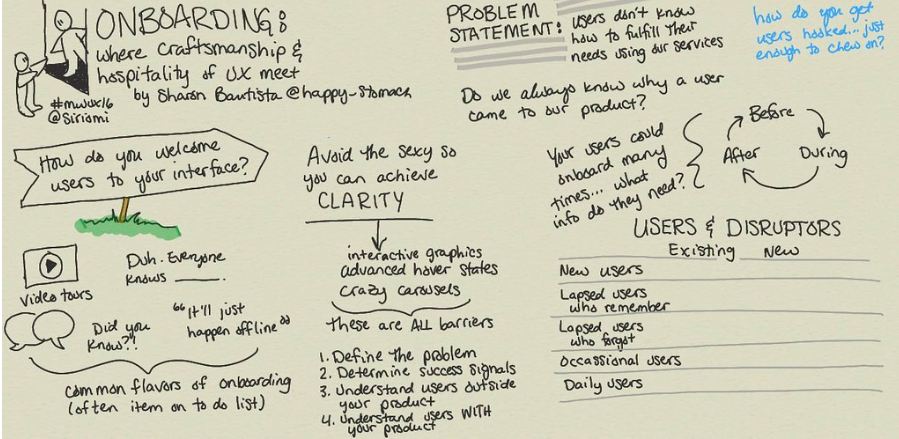 ONBOARDING:
where craftsmanship &
hospitality of UX meet
by Sharon Bautista @happy_stomach
#mwux16
@siriomi
How do you welcome
users to your interface?
video tours
Duh. Everyone
knows ____.
Did you
know?!
"It'll just
happen offline"
common flavors of onboarding
(often item on to do list)
Avoid the sexy so
you can achieve
CLARITY
interactive graphics
advanced hover states
crazy carousels
these are ALL barriers
1. Define the problem
2. Determine success signals
3. Understand users outside
your product
4. Understand users WITH
your product
PROBLEM
STATEMENT:
users don't know
how to fulfill their
needs using our services
how do you get
users hooked... just
enough to chew on?
Do we always know why a user
came to our product?
Your users could
onboard many
times... what
info do they need?
Before
During
After
USERS & DISRUPTORS
Existing New
New users
Lapsed users
who remember
Lapsed users
who forgot
Occassional users
Daily users